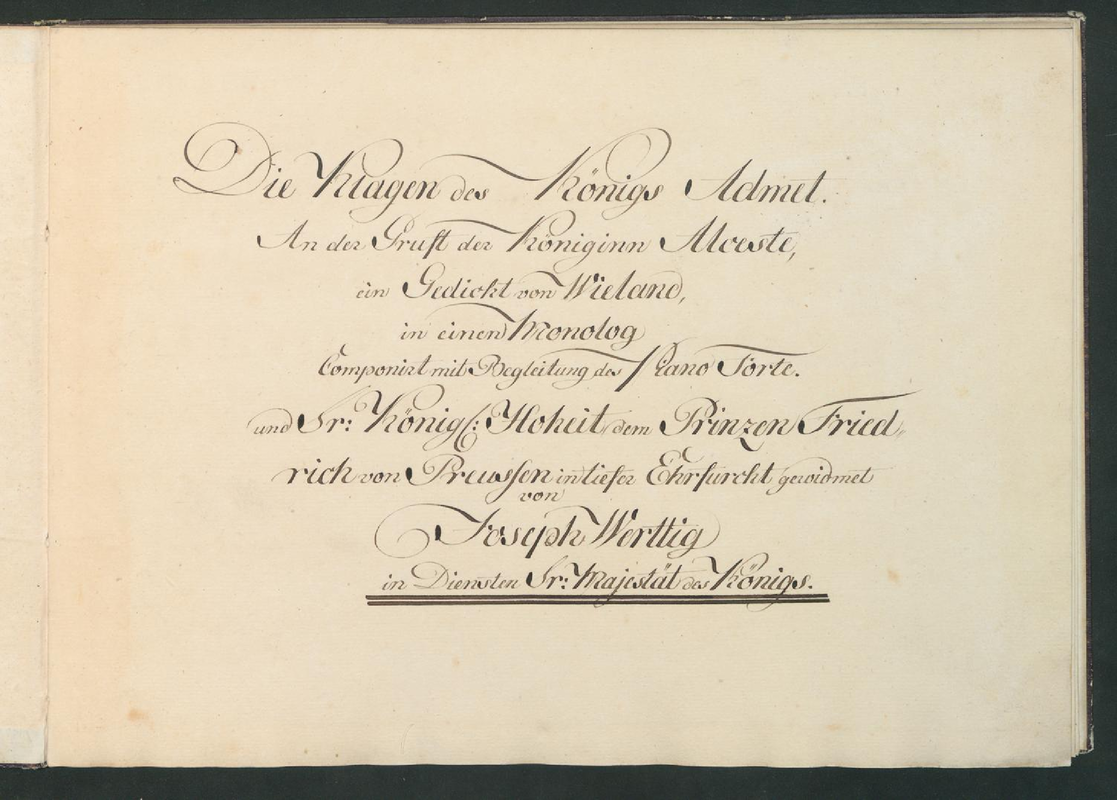 Die Klagen des Königs Admet.
An der Gruft der Königinn Alceste,
ein Gedicht von Wieland,
in einen Monolog
Componirt mit Begleitung des Piano Forte.
und Sr: Königl: Hoheit dem Prinzen Fried-
rich von Preussen in tiefer Ehrfurcht gewidmet
von
Joseph Werttig
in Diensten Sr: Majestät des Königs.